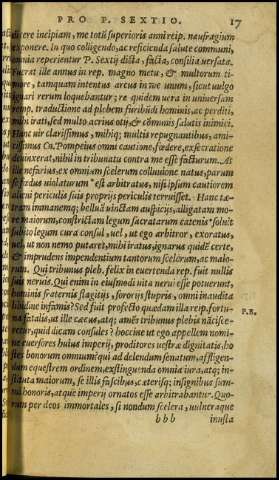 PRO P. SEXTIO. 17
dicere incipiam, me totũ superioris anni reip. naufragium
exponere. In quo colligendo, ac reficienda salute communi,
omnia reperientur P. Sextij dicta, facta, consilia versata.
Fuerat ille annus in rep. magno metu, & multorum ti-
more, tanquam intentus arcus in me unum, sicut uulgo
ignari rerum loquebantur; re quidem uera in universam
remp. traductione ad plebem furibũdi hominis, ac perditi,
mihi irati, sed multo acrius otij, & cõmunis salutis inimici.
Hanc uir clarissimus, mihiq; multis repugnantibus, ami-
cissimus Cn. Pompeius omni cautione, fœdere, exsecratione
devinxerat, nihil in tribunatu contra me esse facturum. At
ille nefarius, ex omnium scelerum colluuione natus, parum
se fœdus uiolaturum est arbitratus, nisi ipsum cautiorem
alieni periculi suis proprijs periculis terruisset. Hanc tæ-
tram immanemq; belluã uinctam auspicijs, alligatam mo-
re maiorum, constrictam legum sacratarum catenis solvit
subito legum cura consul, uel, ut ego arbitror, exoratus,
uel, ut non nemo putaret, mihi iratus, ignarus quidẽ certe,
& imprudens impendentium tantorum scelerum, ac malo-
rum. Qui tribunus pleb. felix in euertenda rep. fuit nullis
suis neruis. Qui enim in eiusmodi vita nerui esse potuerunt,
hominis fraternis flagitijs, sororijs stupris, omni inaudita
libidine infamis? Sed fuit profecto quædam illa reip. fortu-
na fatalis, ut ille cæcus, atq; amẽs tribunus plebis nãcisce-
retur, quid dicam consules? hoccine ut ego appellem nomi-
ne euersores huius imperij, proditores uestræ dignitatis, ho
stes bonorum omnium? qui ad delendum senatum, affligen-
dum equestrem ordinem, exstinguenda omnia iura, atq; in-
stituta maiorum, se illis fascibus, cæterisq; insignibus sum-
mi honoris, atque imperij ornatos esse arbitrabantur. Quo-
rum per deos immortales, si nondum scelera, uulneraque
P.R.
b b b inusta